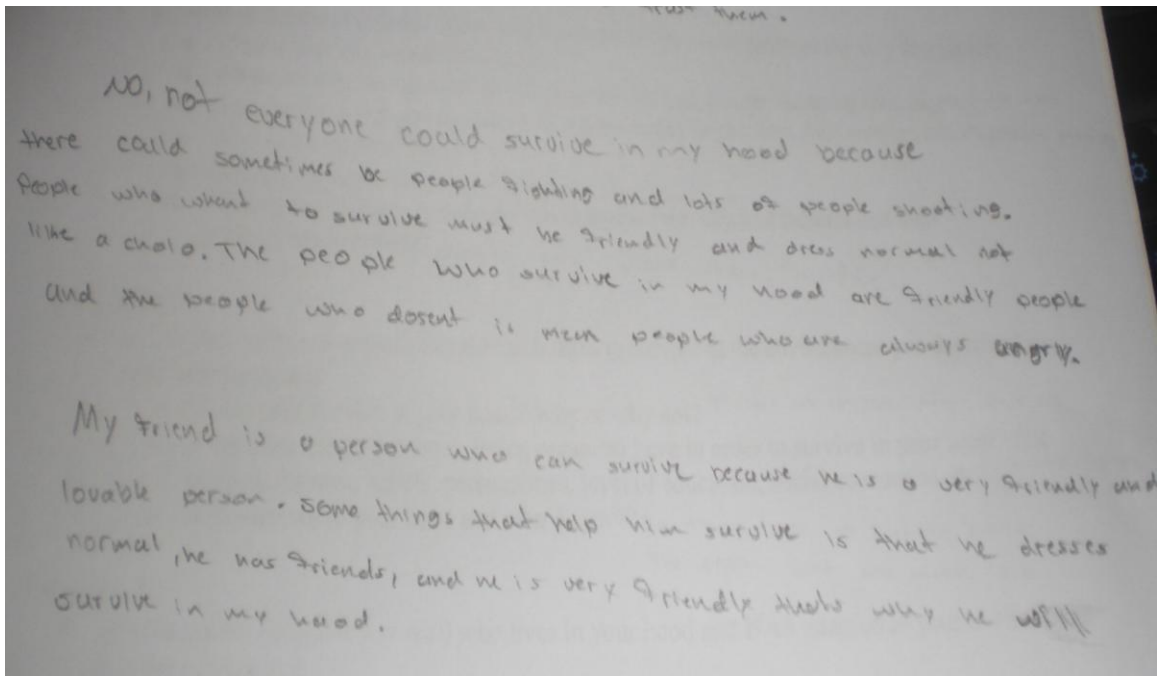 trust them.
No, not everyone could survive in my hood because
there could sometimes be people fighting and lots of people shooting.
People who whant to survive must be friendly and dress normal not
like a cholo. The people who survive in my hood are friendly people
and the people who dosent is mean people who are always angry.
My friend is a person who can survive because he is a very friendly and
lovable person. Some things that help him survive is that he dresses
normal, he has friends, and he is very friendly thats why he will
survive in my hood.